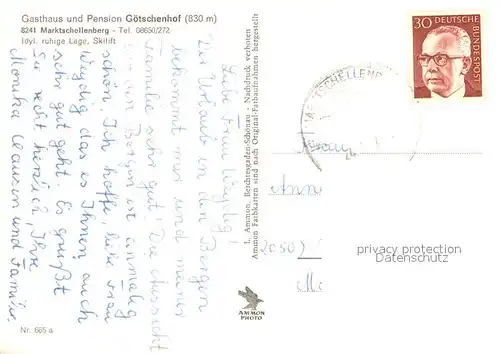 Gasthaus und Pension Götschenhof (830 m)
8241 Marktschellenberg - Tel. 08650/272
Idyl. ruhige Lage, Skilift
Liebe Frau Weydig!
Der Urlaub in den Bergen
bekommt mir und meiner
Familie sehr gut! Die Aussicht
Bergen ist einmalig
schön. Ich hoffe, liebe Frau
Weydig das es Ihnen auch
sehr gut geht. Es grüßt
Sie recht herzlich, Ihre
Monika Clausen und Familie.
Nr. 665 a
L. Ammon, Berchtesgaden-Schönau - Nachdruck verboten
Ammon Farbkarten sind nach Original-Farbaufnahmen hergestellt
AMMON
PHOTO
30 DEUTSCHE
BUNDESPOST
Frau
Anne
2050
privacy protection
Datenschutz